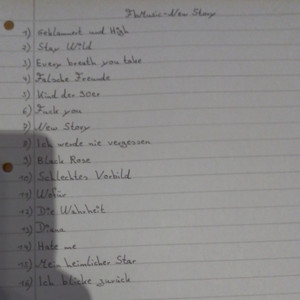 FaMusic - New Story
1) Schlammert und High
2) Stay Wild
3) Every breath you take
4) Falsche Freunde
5) Kind der 90er
6) Fuck you
7) New Story
8) Ich werde nie vergessen
9) Black Rose
10) Schlechtes Vorbild
11) Wofür
12) Die Wahrheit
13) Diana
14) Hate me
15) Mein heimlicher Star
16) Ich blicke zurück